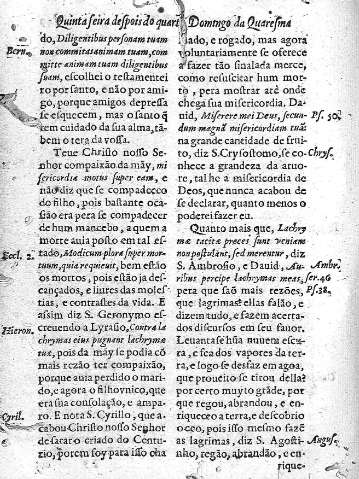 Quinta feira despois do quart Domingo da Quaresma
do, Diligentibus personam tuam
non commitas animam tuam, com
mitte animam tuam diligentibus
suam, escolhei o testamentei
ro por santo, e não por ami
go, porque amigos depressa
se esquecem, mas o santo
tem cuidado da sua alma, tã
bem o tera da vossa.
Teue Christo nosso Se
nhor compaixão da mãy, mi
sericordia motus super eam, e
não diz que se compadeceo
do filho, pois bastante oca
sião era pera se compadecer
de hum mancebo, a quem a
morte auia posto em tal es
tado, Modicum plora super mor
tuum, quia requieuit, bem estão
os mortos, pois estão ja des
cançados, e liures das moles
tias, e contrastes da vida. E
assim diz S. Geronymo es
creuendo a Tyrasio, Contra la
chrymas eius pugnant lachrymæ
tuæ, pois da mãy se podia cõ
mais rezão ter compaixão,
porque auia perdido o mari
do, e agora o filho vnico, que
era sua consolação, e ampa
ro. E nota S. Cyrillo, que a
cabou Christo nosso Senhor
de sarar o criado do Centu
rio, porem foy para isso cha
Bern.
Eccl. 2.
Hieron.
Cyril.
mado, e rogado, mas agora
voluntariamente se oferece
a fazer tão sinalada merce,
como resuscitar hum mor
to, pera mostrar atè onde
chega sua misericordia. Da
uid, Miserere mei Deus, secun
dum magnã misericordiam tuã
na grande cantidade de frui
to, diz S. Crysostomo, se co
nhece a grandeza da aruo
re, tal he a misericordia de
Deos, que nunca acabou de
se declarar, quanto menos o
poderei fazer eu.
Quanto mais que, Lachry
mæ tacitæ preces sunt veniam
non postulant, sed merentur, diz
S. Ambrosio, e Dauid, Au
ribus percipe lachrymas meas,
pera que são mais rezões,
que lagrimas? ellas falão, e
dizem tudo, e fazem acerta
dos discursos em seu fauor.
Leuantase hũa nuuem escu
ra, e fea dos vapores da ter
ra, e logo se desfaz em agoa,
que proueito se tirou della?
por cerro muyto grãde, por
que regou, abrandou, e en
riqueceo a terra, e descobrio
o ceo, pois isso mesmo fazẽ
as lagrimas, diz S. Agosti
nho, regão, abrandão, e en-
rique-
Ps. 50.
Chrys.
Ambr.
ser. 46
Ps. 38.
Augus.